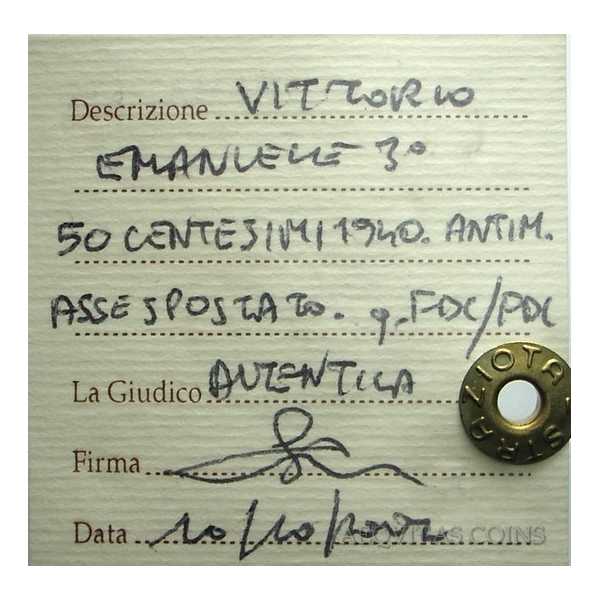 Descrizione VITTORIO
EMANUELE 3º
50 CENTESIMI 1940. ANTIM.
ASSE SPOSTATO. q.FDC/FDC
La Giudico AUTENTICA
Firma
Data 10/10/
STRAZIOTA
COINS